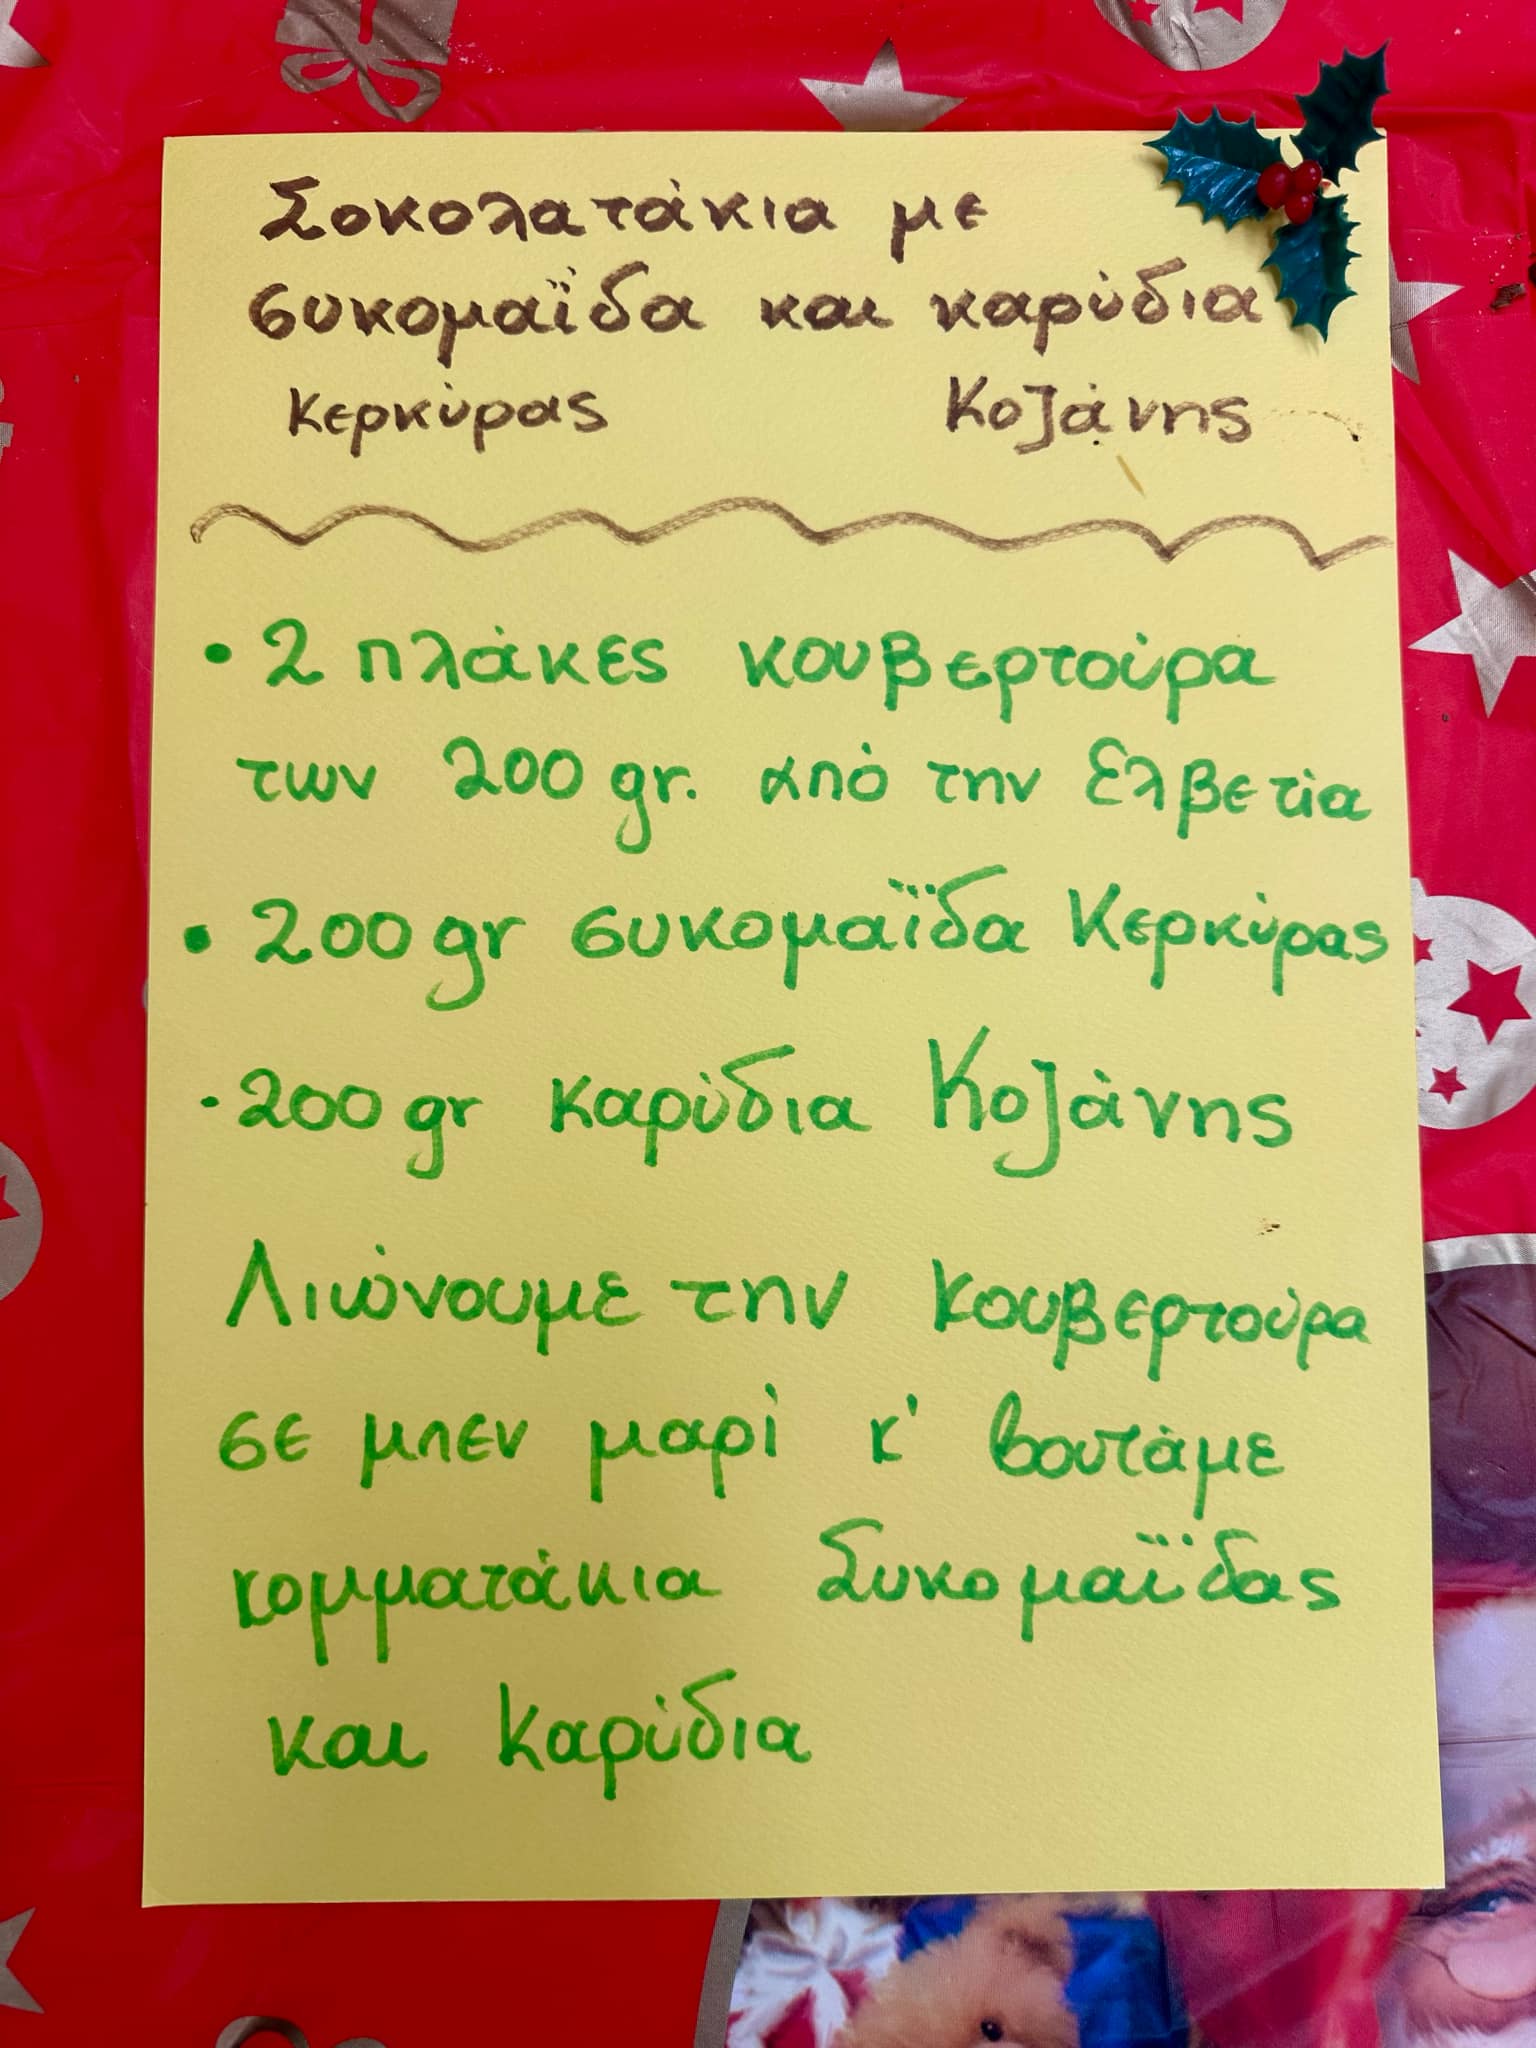 Σοκολατάκια με
συκομαΐδα και καρύδια
Κερκύρας Κοζάνης
• 2 πλάκες κουβερτούρα
των 200 gr. από την Ελβετία
• 200 gr συκομαΐδα Κερκύρας
• 200 gr καρύδια Κοζάνης
Λιώνουμε την κουβερτούρα
σε μπεν μαρί κ' βουτάμε
κομματάκια Συκομαΐδας
και καρύδια